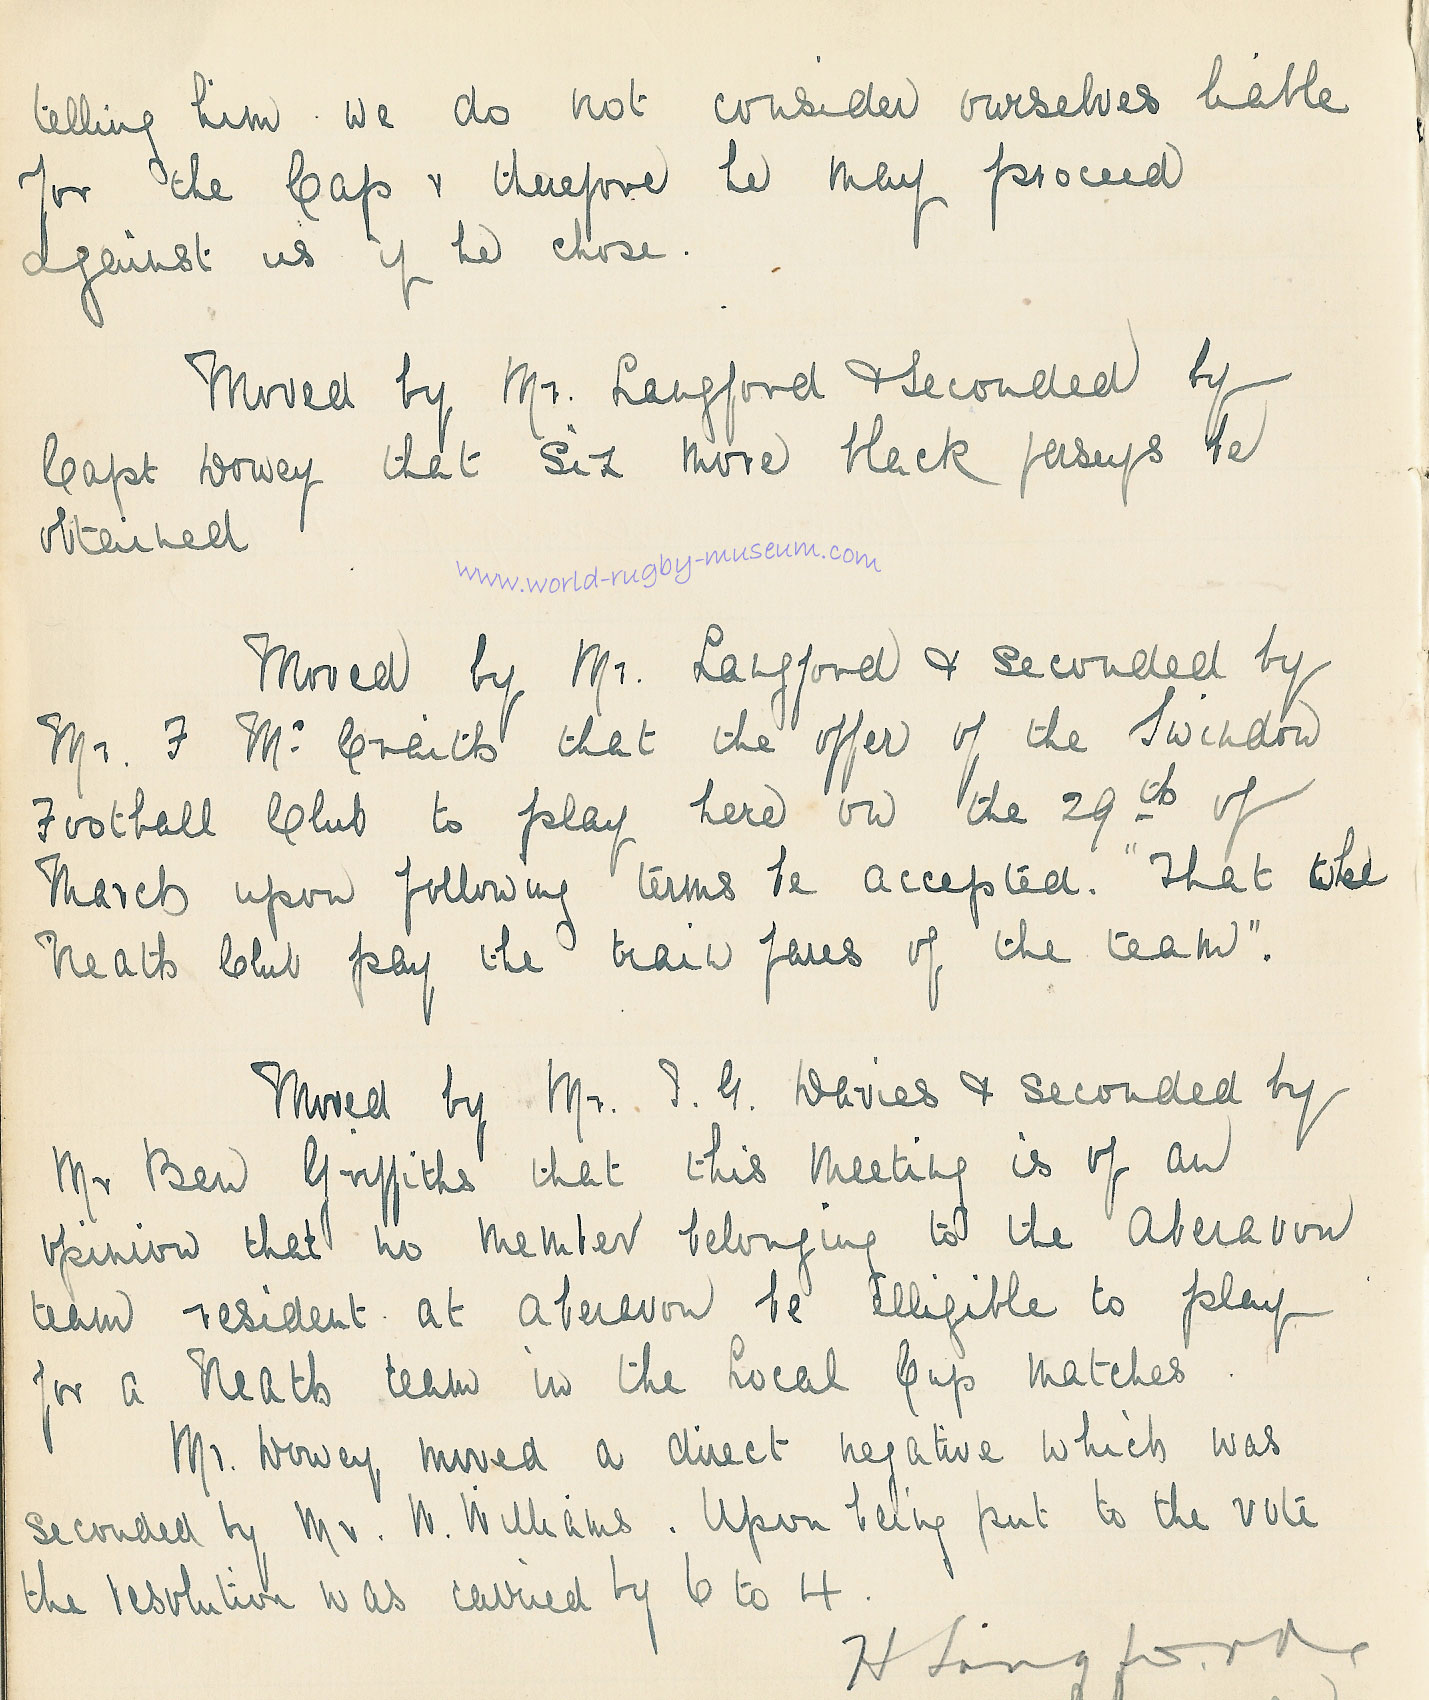 telling him we do not consider ourselves liable
for the Cap & therefore he may proceed
against us if he chose.
Moved by Mr. Langford & Seconded by
Capt Dowey that Six more black jerseys be
obtained
www.world-rugby-museum.com
Moved by Mr. Langford & seconded by
Mr. F Mc Craith that the offer of the Swindon
Football Club to play here on the 29th of
March upon following terms be accepted. "That the
Neath Club pay the train fares of the team".
Moved by Mr. T. G. Davies & seconded by
Mr Ben Griffiths that this meeting is of an
opinion that no member belonging to the Aberavon
team resident at Aberavon be Elligible to play
for a Neath team in the Local Cup matches.
Mr. Dowey moved a direct negative which was
seconded by Mr. W. Williams. Upon being put to the vote
the resolution was carried by 6 to 4.
H Langford